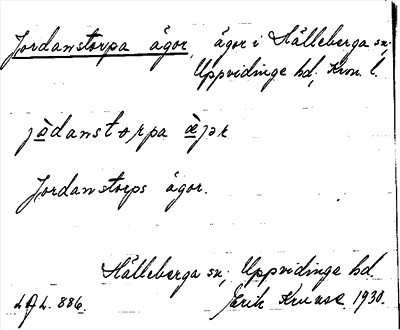 Jordanstorpa ägor, ägor i Hälleberga sn;
Uppvidinge hd; Kron. l.
jɷdanstorpa æjər
Jordanstorps ägor.
Hälleberga sn; Uppvidinge hd.
LAL. 886. Erik Kruse 1930.